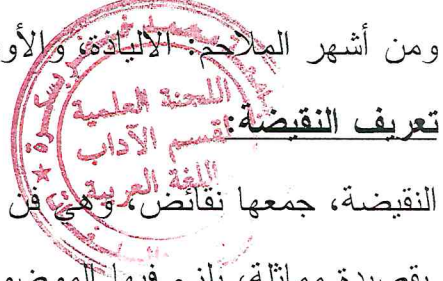 ومن أشهر الملاحم: الالياذة، والأو
تعريف النقيضة:
النقيضة، جمعها نقائض، وهي فن
بقصيدة مماثلة، يلتزم فيها الموضو
اللجنة العلمية
لقسم الآداب
اللغة العربية